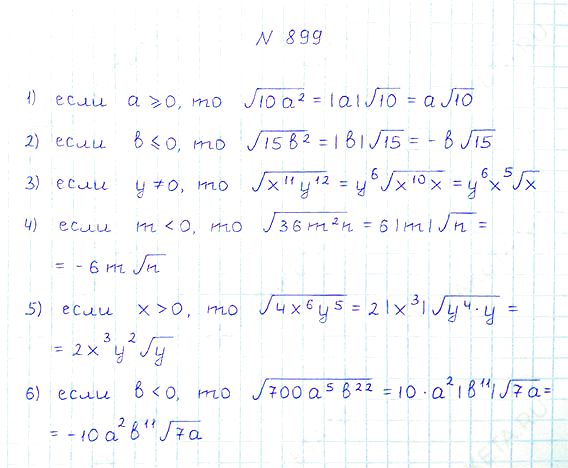 N 899
1) если a ⩾ 0, то √10a² = |a|√10 = a√10
2) если b ⩽ 0, то √15b² = |b|√15 = -b√15
3) если y ≠ 0, то √x¹¹y¹² = y⁶√x¹⁰x = y⁶x⁵√x
4) если m < 0, то √36m²n = 6|m|√n =
= -6m√n
5) если x > 0, то √4x⁶y⁵ = 2|x³|√y⁴·y =
= 2x³y²√y
6) если b < 0, то √700a⁵b²² = 10·a²|b¹¹|√7a =
= -10a²b¹¹√7a